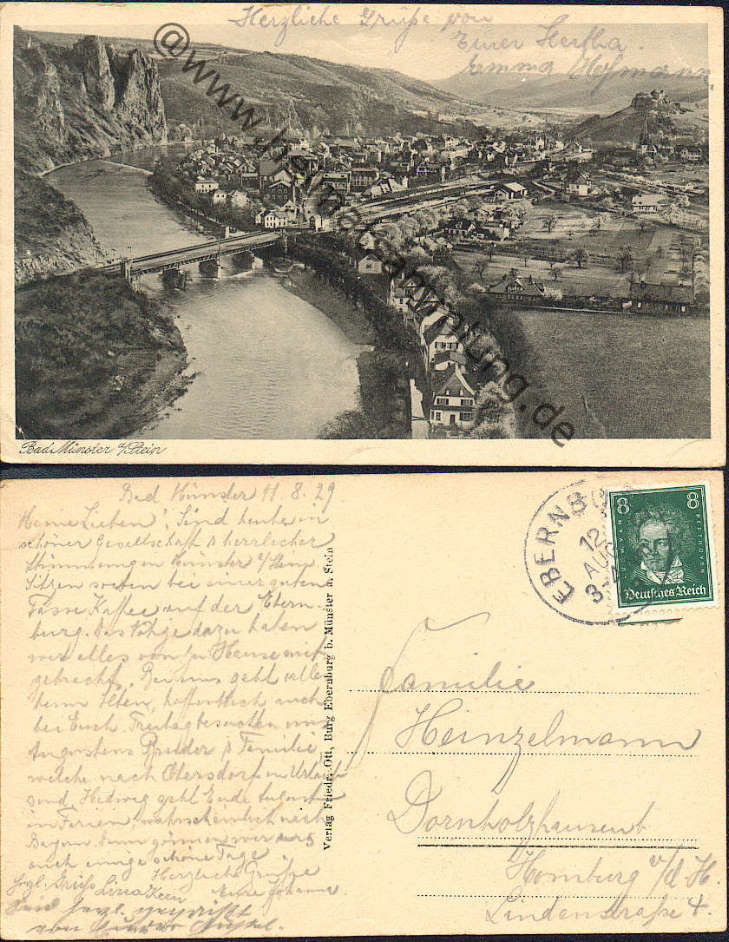 Herzliche Grüße von
Eurer Hertha.
Emma Hofmann
@www.heimatsammlung.de
Bad Münster a/Stein
Bad Münster 11.8.29
Meine Lieben! Sind heute in
schöner Gesellschaft & herrlicher
Stimmung in Münster a/Stein
Sitzen soeben bei einer guten
Tasse Kaffee auf der Ebern-
burg. Das Nötige dazu haben
wir alles von zu Hause mit
gebracht. Bei uns geht alles
beim Alten, hoffentlich auch
bei Euch. Freitag besuchten uns
Augustens Bruder & Familie,
welche nach Obersdorf in Urlaub
sind, Hedwig geht Ende August
in Ferien, wahrscheinlich nach
auch einige schöne Tage
Herzliche Grüße
Verlag Friedr. Ott, Burg Ebernburg b. Münster a. Stein
EBERNBU
12
AUG
8 8
BEETHOVEN
Deutsches Reich
Familie
Heinzelmann
Dornholzhausen b
Homburg v/d H.
Lindenstraße 4.